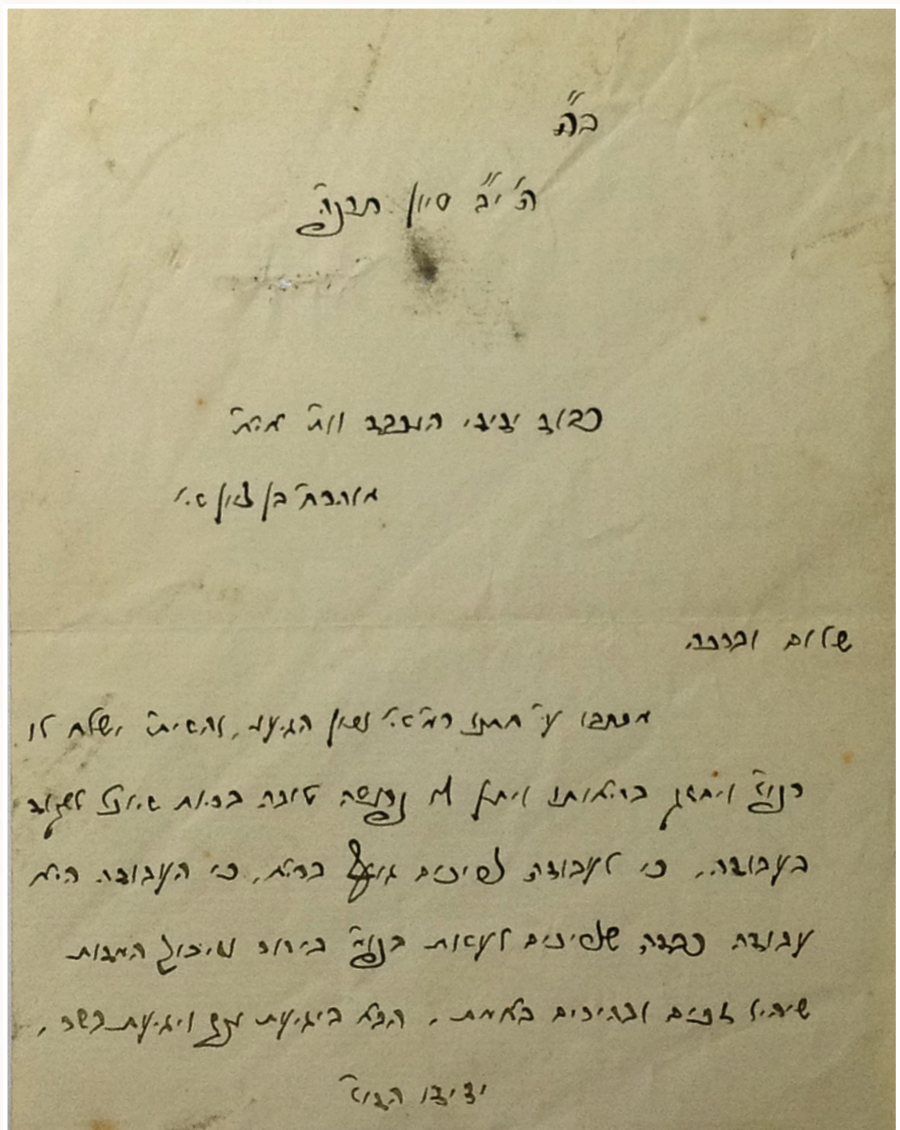 ב"ה
ה' י"ב סיון תרנה
כבוד ידידי הנכבד וו"ח
מוהרח בן ציון שי'
שלום וברכה
מכתבו ע"י חתנו שי' נכון הגיענו, והשי"ת ישלח לו
רפו"ש ויחזק בריאותו ויתן לו טובה
בעבודה, כי לעבודה צריכים גוף בריא, כי העבודה היא
עבודה כבדה שצריכים לעשות בנפש בירור וזיכוך המדות
שיהיו זכים ובהירים באמת, הבא ביגיעת נפש ויגיעת בשר,
ידידו הדו"ש